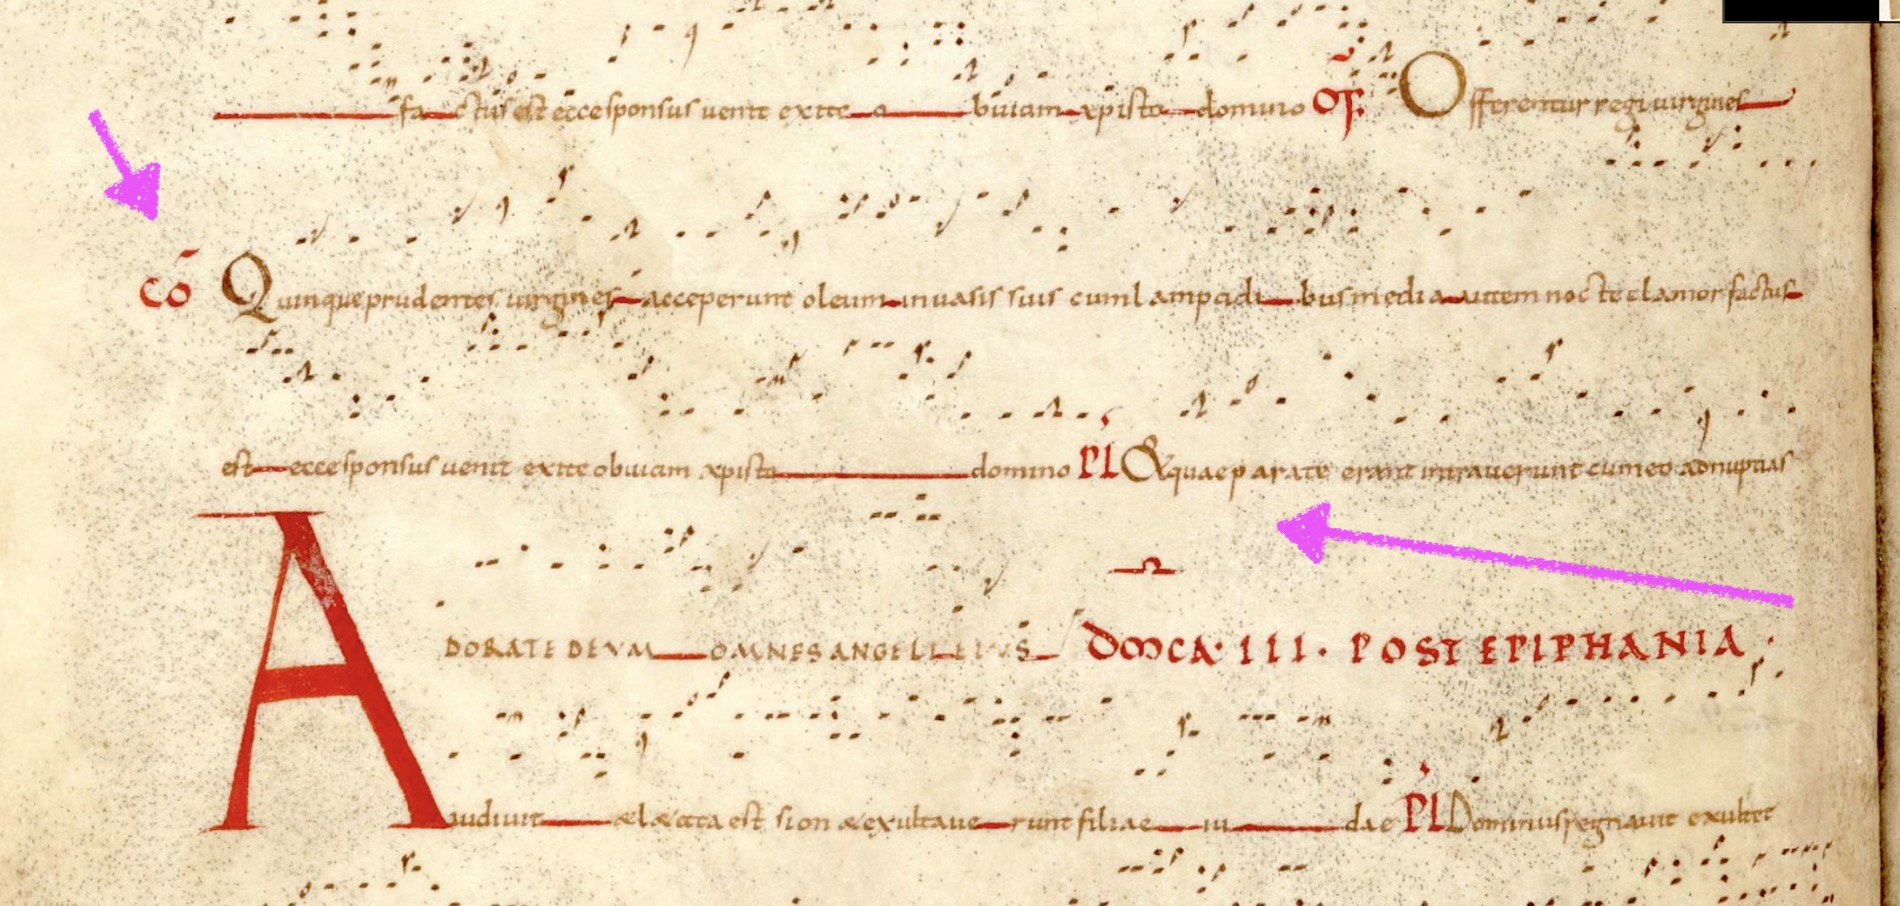 factus est ecce sponsus venit exite obviam xpisto domino OF Offerentur regi virgines
CŌ Quinque prudentes virgines acceperunt oleum in vasis suis cum lampadibus media autem nocte clamor factus
est ecce sponsus venit exite obviam xpisto domino Pl & quae paratae erant intraverunt cum eo ad nuptias
ADORATE DEUM OMNES ANGELI EIUS DOMCA · III · POST EPIPHANIA
Audivit & laetata est sion & exultaverunt filiae iudae Pl Dominus regnavit exultet